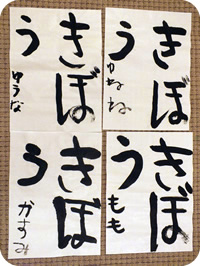 きぼ
う
ゆうな
きぼ
う
ゆずね
きぼ
う
かすみ
きぼ
う
もも